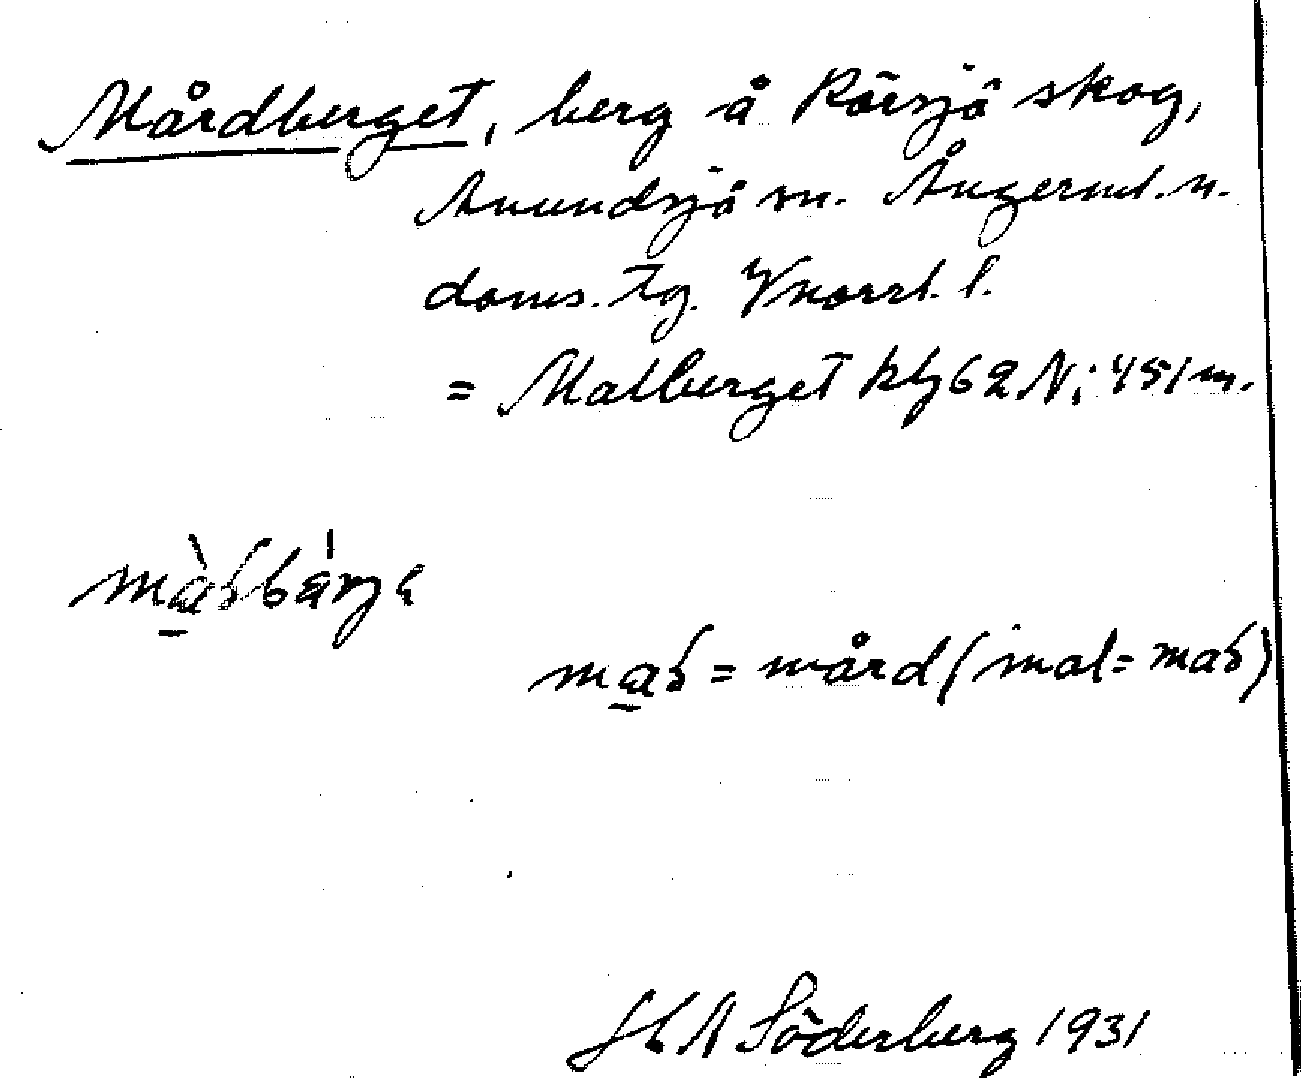 Mårdberget, berg å Rörsjö skog,
Anundsjö sn. Ångerml. n.
doms. tg. Vnorrl. l.
= Malberget kbl 62 N; 451 m.
mård (mal =
H A Söderberg 1931